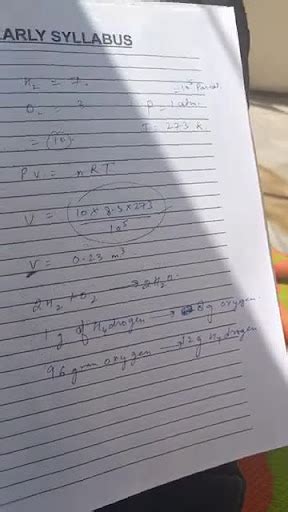 EARLY SYLLABUS
H₂ = 7
O₂ = 3 P = 1 atm = 10⁵ Pascal
= (10) T = 273 K
PV = nRT
V = (10 × 8.3 × 273) / 10⁵
V = 0.23 m³
2H₂ + O₂ → 2H₂O
1 g of Hydrogen → 8g oxygen
96 gram oxygen → 12 g Hydrogen